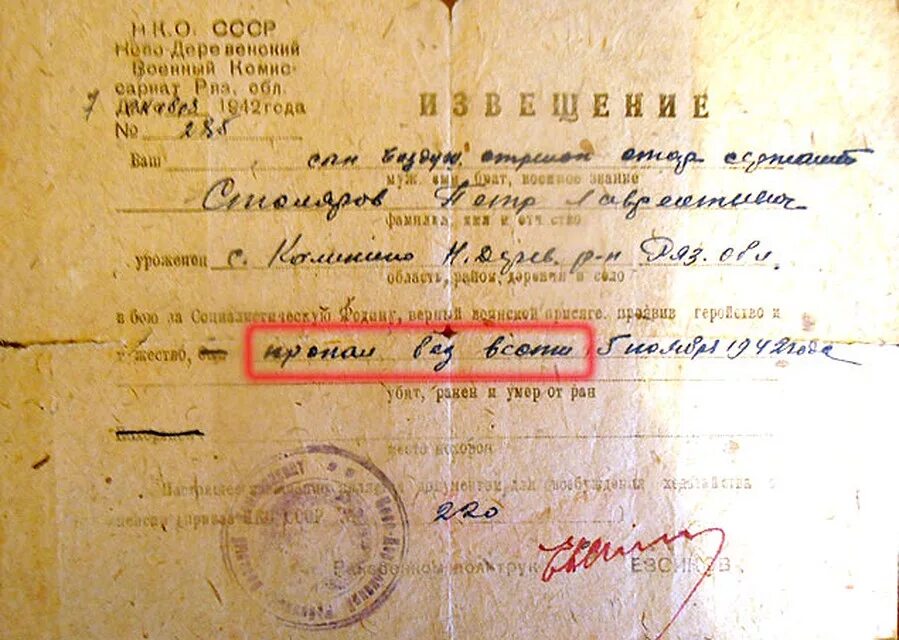 Н.К.О. СССР
Ново-Деревенский
Военный Комис-
сариат Ряз. обл.
7 декабря 1942 года
№ 285
ИЗВЕЩЕНИЕ
Ваш сын сержант
муж, сын, брат, военное звание
Столяров Петр Лаврентьевич
фамилия, имя и отчество
уроженец с. Калинино Н. Дерев. р-н Ряз. обл.
область, район, деревня и село
в бою за Социалистическую Родину, верный воинской присяге, проявив геройство и
мужество, пропал без вести 5 ноября 1942 года
убит, ранен и умер от ран
место похорон
Настоящее документом для возбуждения ходатайства о
пенсии (приказ НКО СССР № 220 )
Райвоенком политрук ЕВСИКОВ